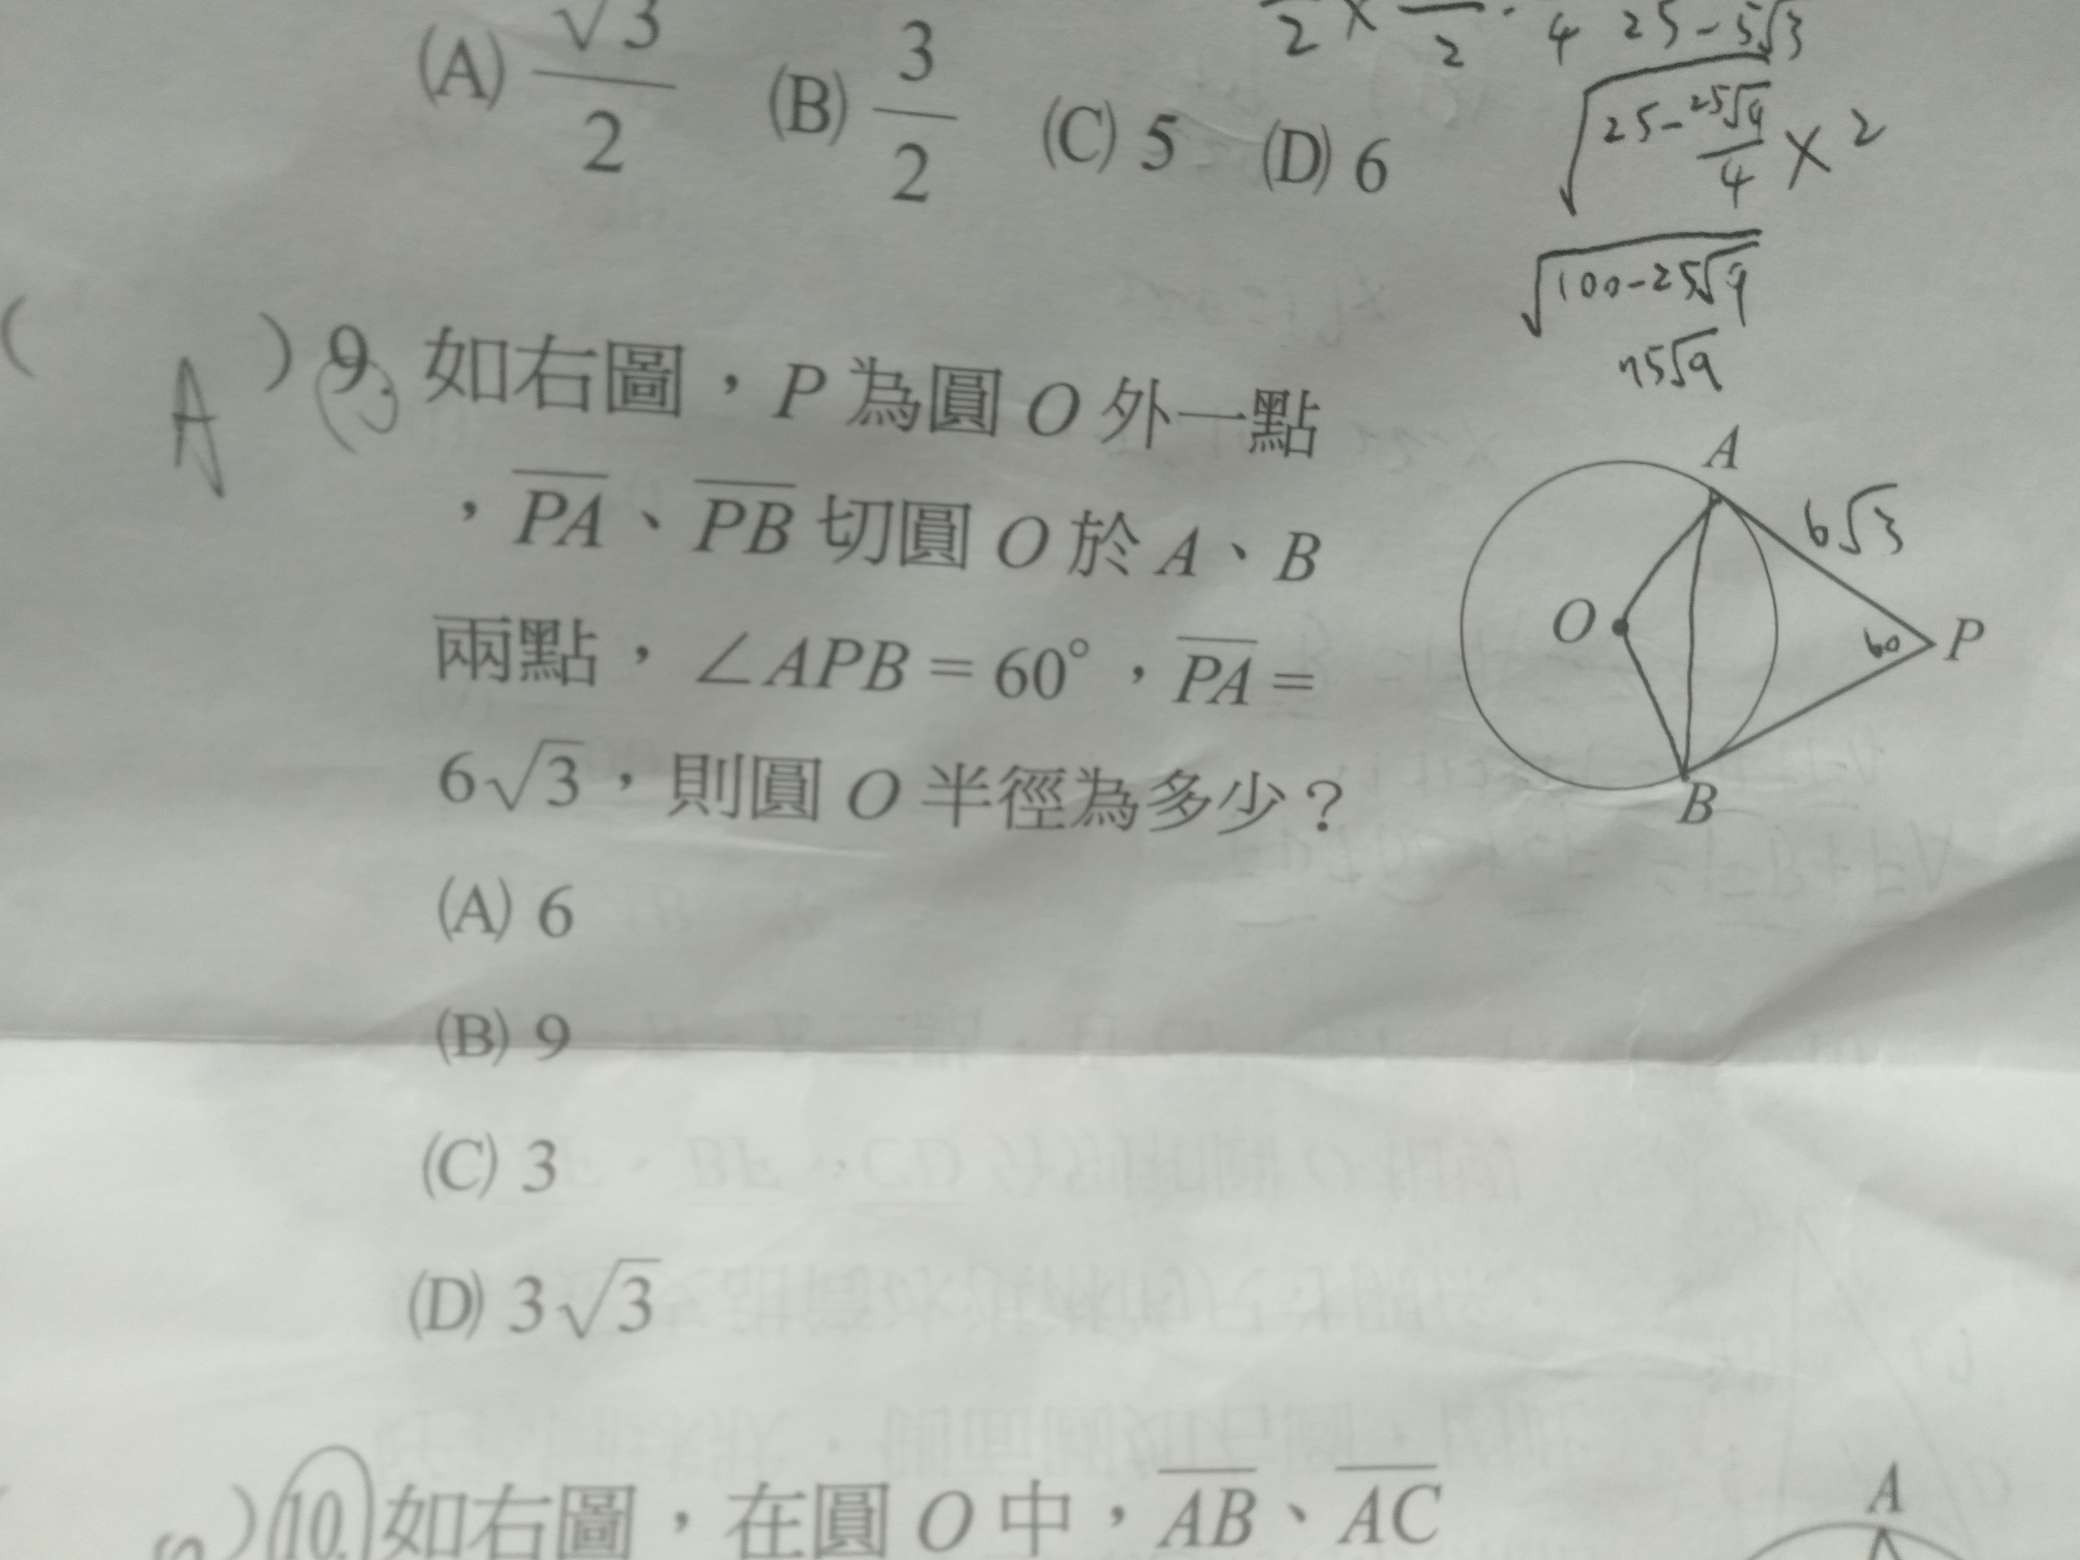 (A) √3/2 (B) 3/2 (C) 5 (D) 6
25-5√3
√(25-25√9/4) × 2
√(100-25√9)
75√9
( A ) 9. 如右圖，P 為圓 O 外一點
，PA、PB 切圓 O 於 A、B
兩點，∠APB = 60°，PA =
6√3，則圓 O 半徑為多少？
A
6√3
O
60
P
B
(A) 6
(B) 9
(C) 3
(D) 3√3
) 10. 如右圖，在圓 O 中，AB、AC
A